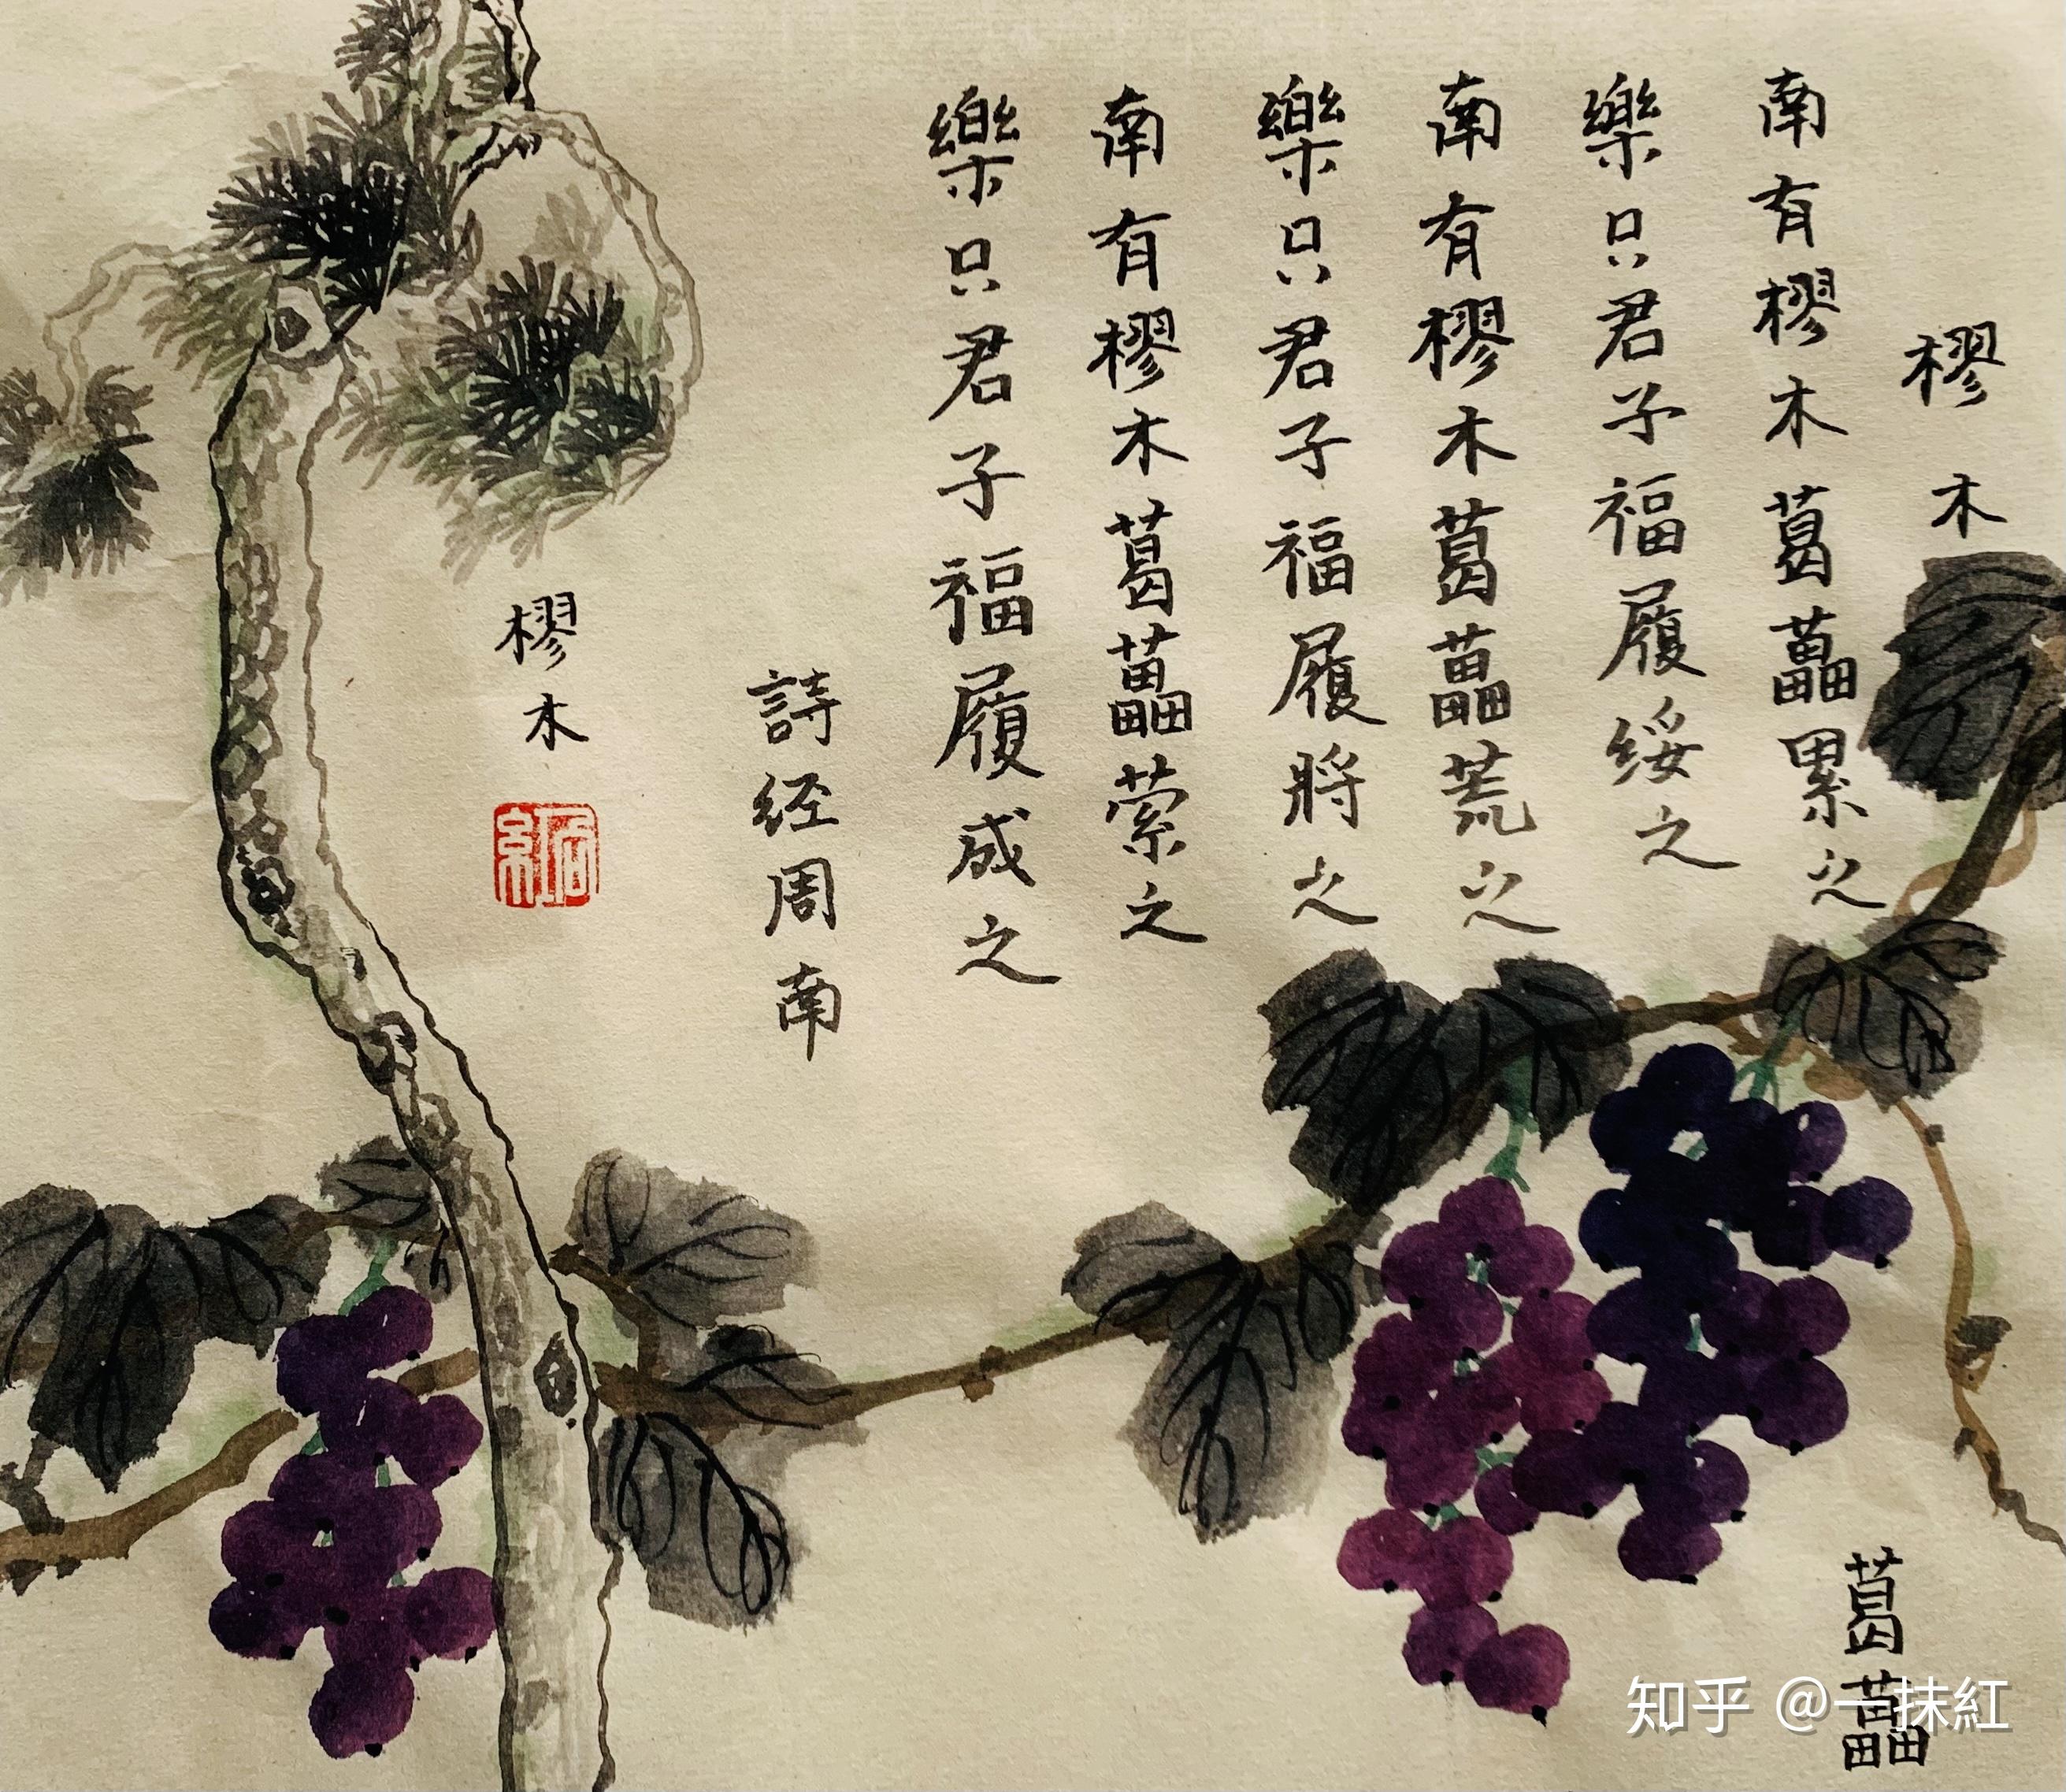 樛木
南有樛木葛藟累之
樂只君子福履綏之
南有樛木葛藟荒之
樂只君子福履將之
南有樛木葛藟縈之
樂只君子福履成之
詩经周南
樛木
葛藟
知乎 @一抹紅